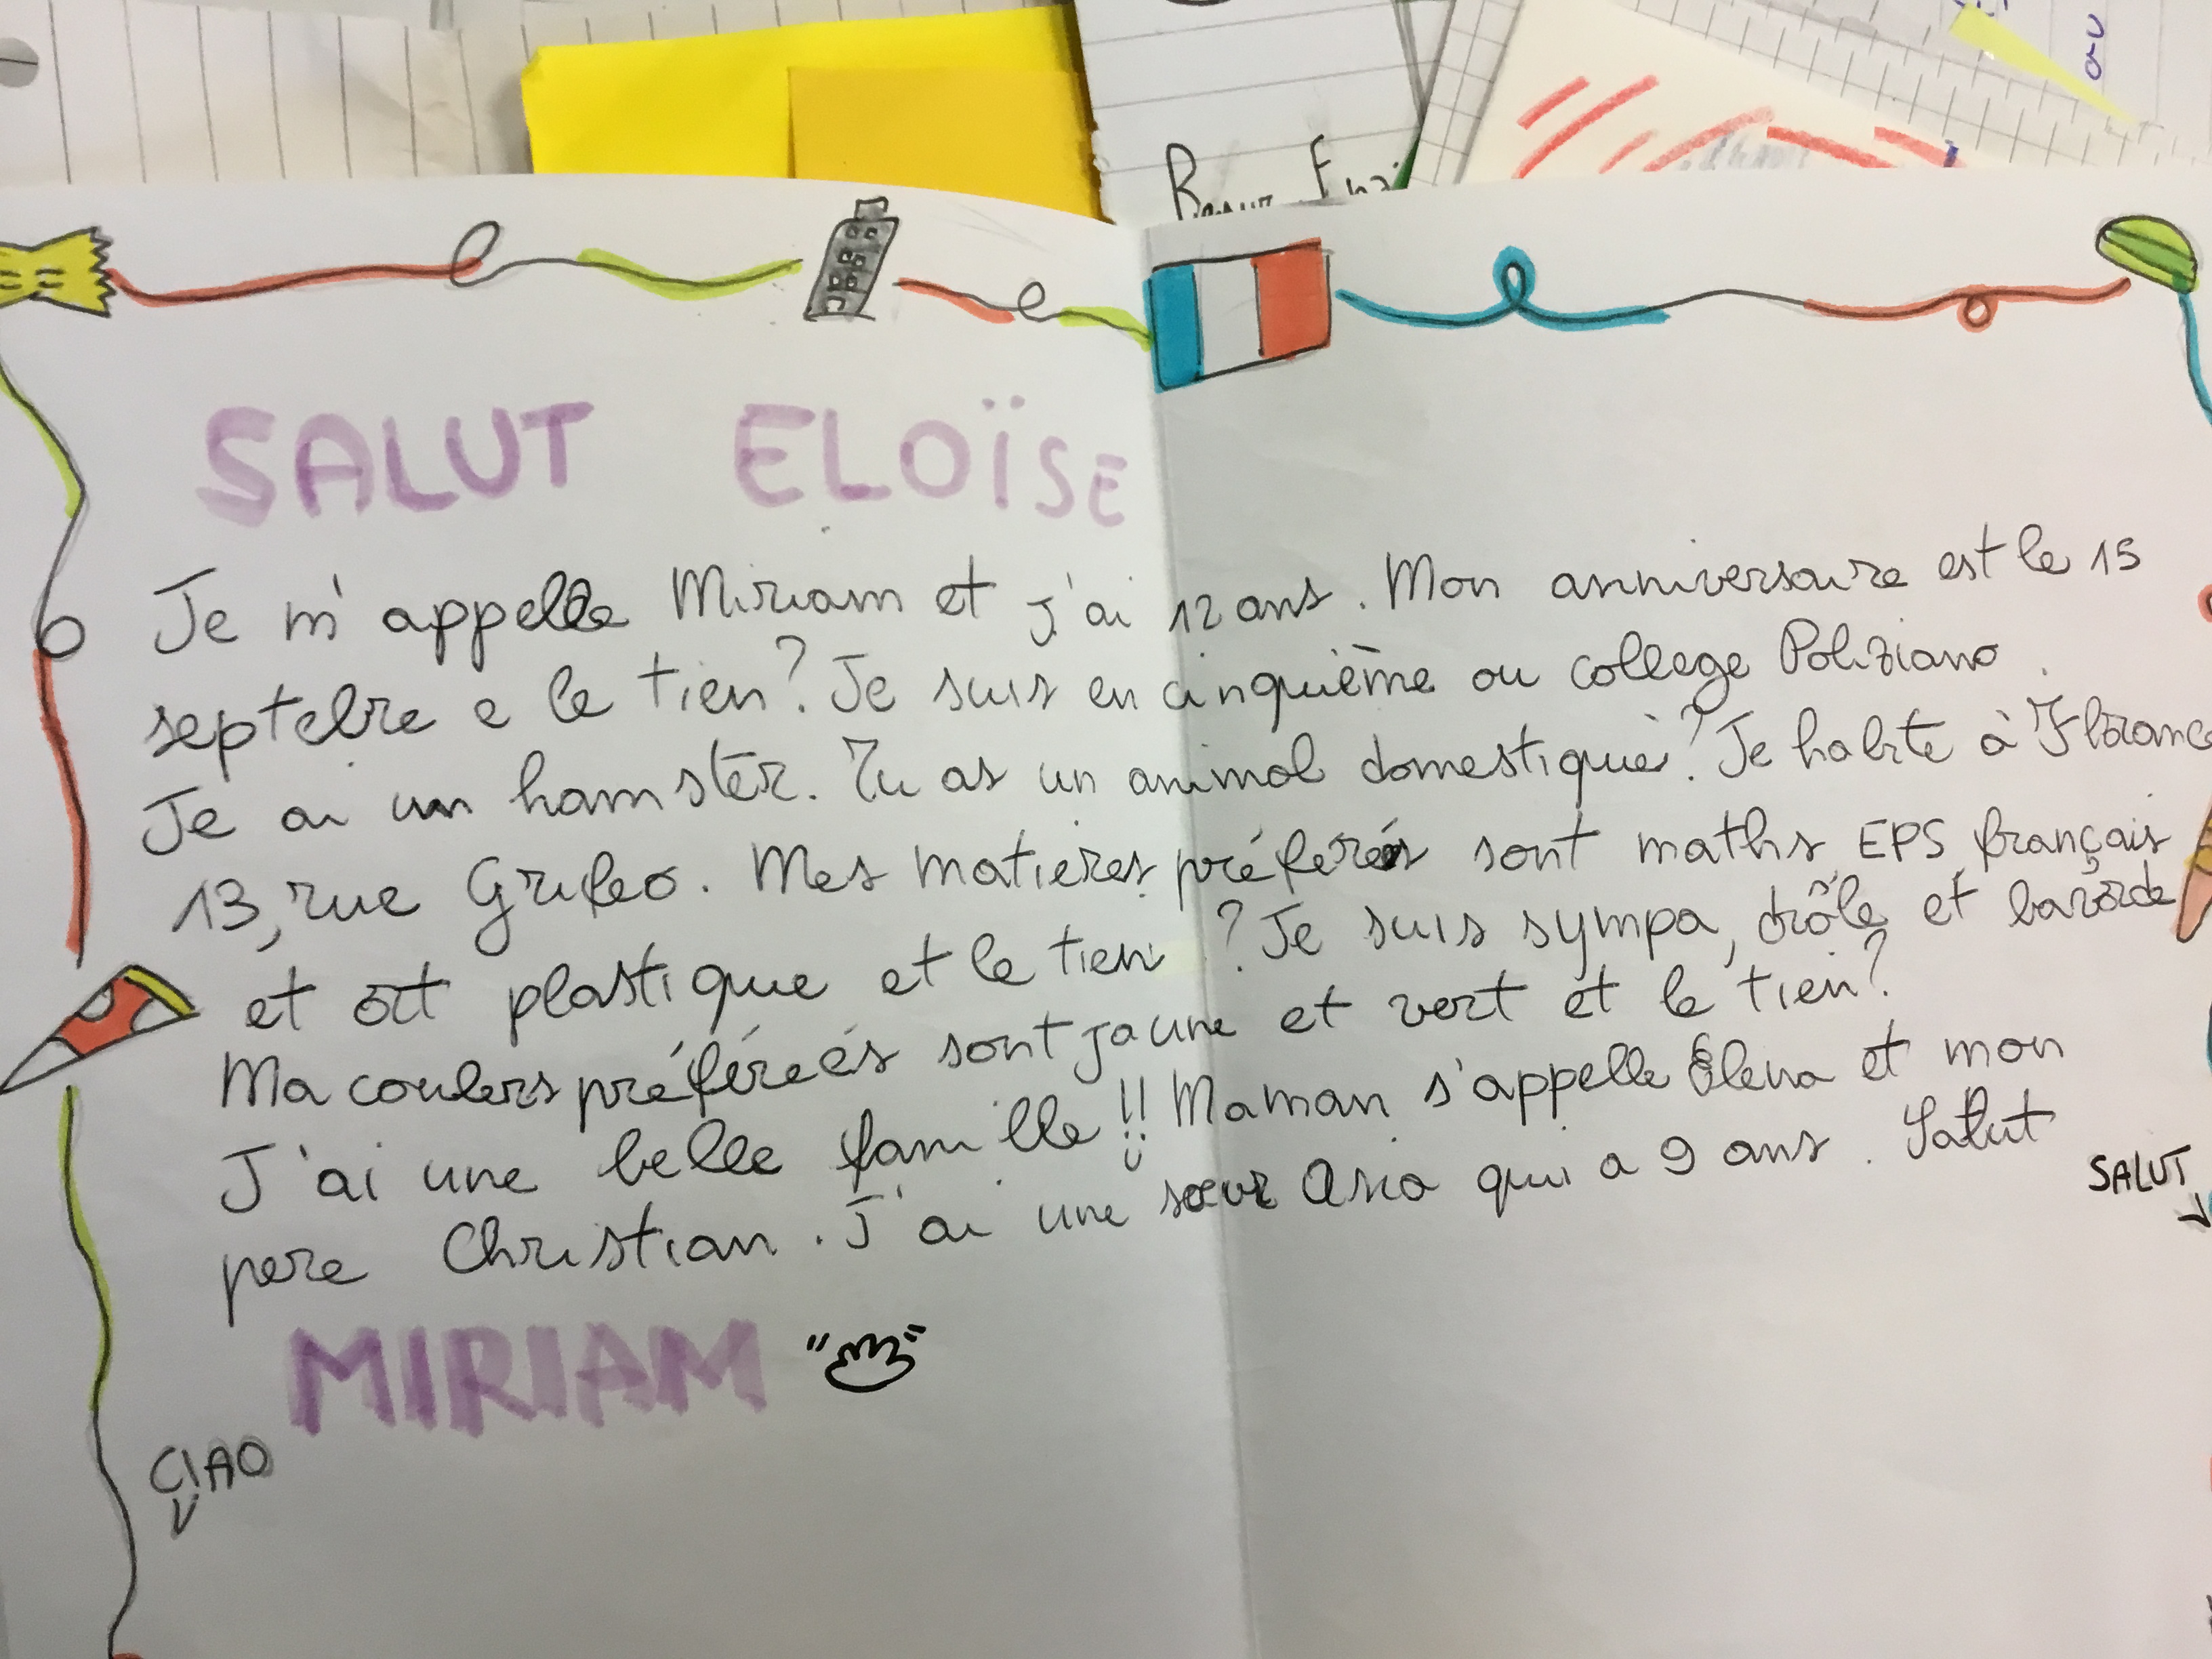 SALUT ELOÏSE
Je m'appelle Miriam et j'ai 12 ans. Mon anniversaire est le 15
septebre e le tien? Je suis en cinquième au college Poliziano.
Je ai un hamster. Tu as un animal domestique? Je habite à Florance
13, rue Grifeo. Mes matieres préferés sont maths, EPS, français
et art plastique et le tien? Je suis sympa, drôle et bavarde
Ma coulers préféreés sont jaune et vert et le tien?
J'ai une belle famille!! Maman s'appelle Elena et mon
pere Christian. J'ai une sœur Asia qui a 9 ans. Salut
SALUT
MIRIAM
CIAO